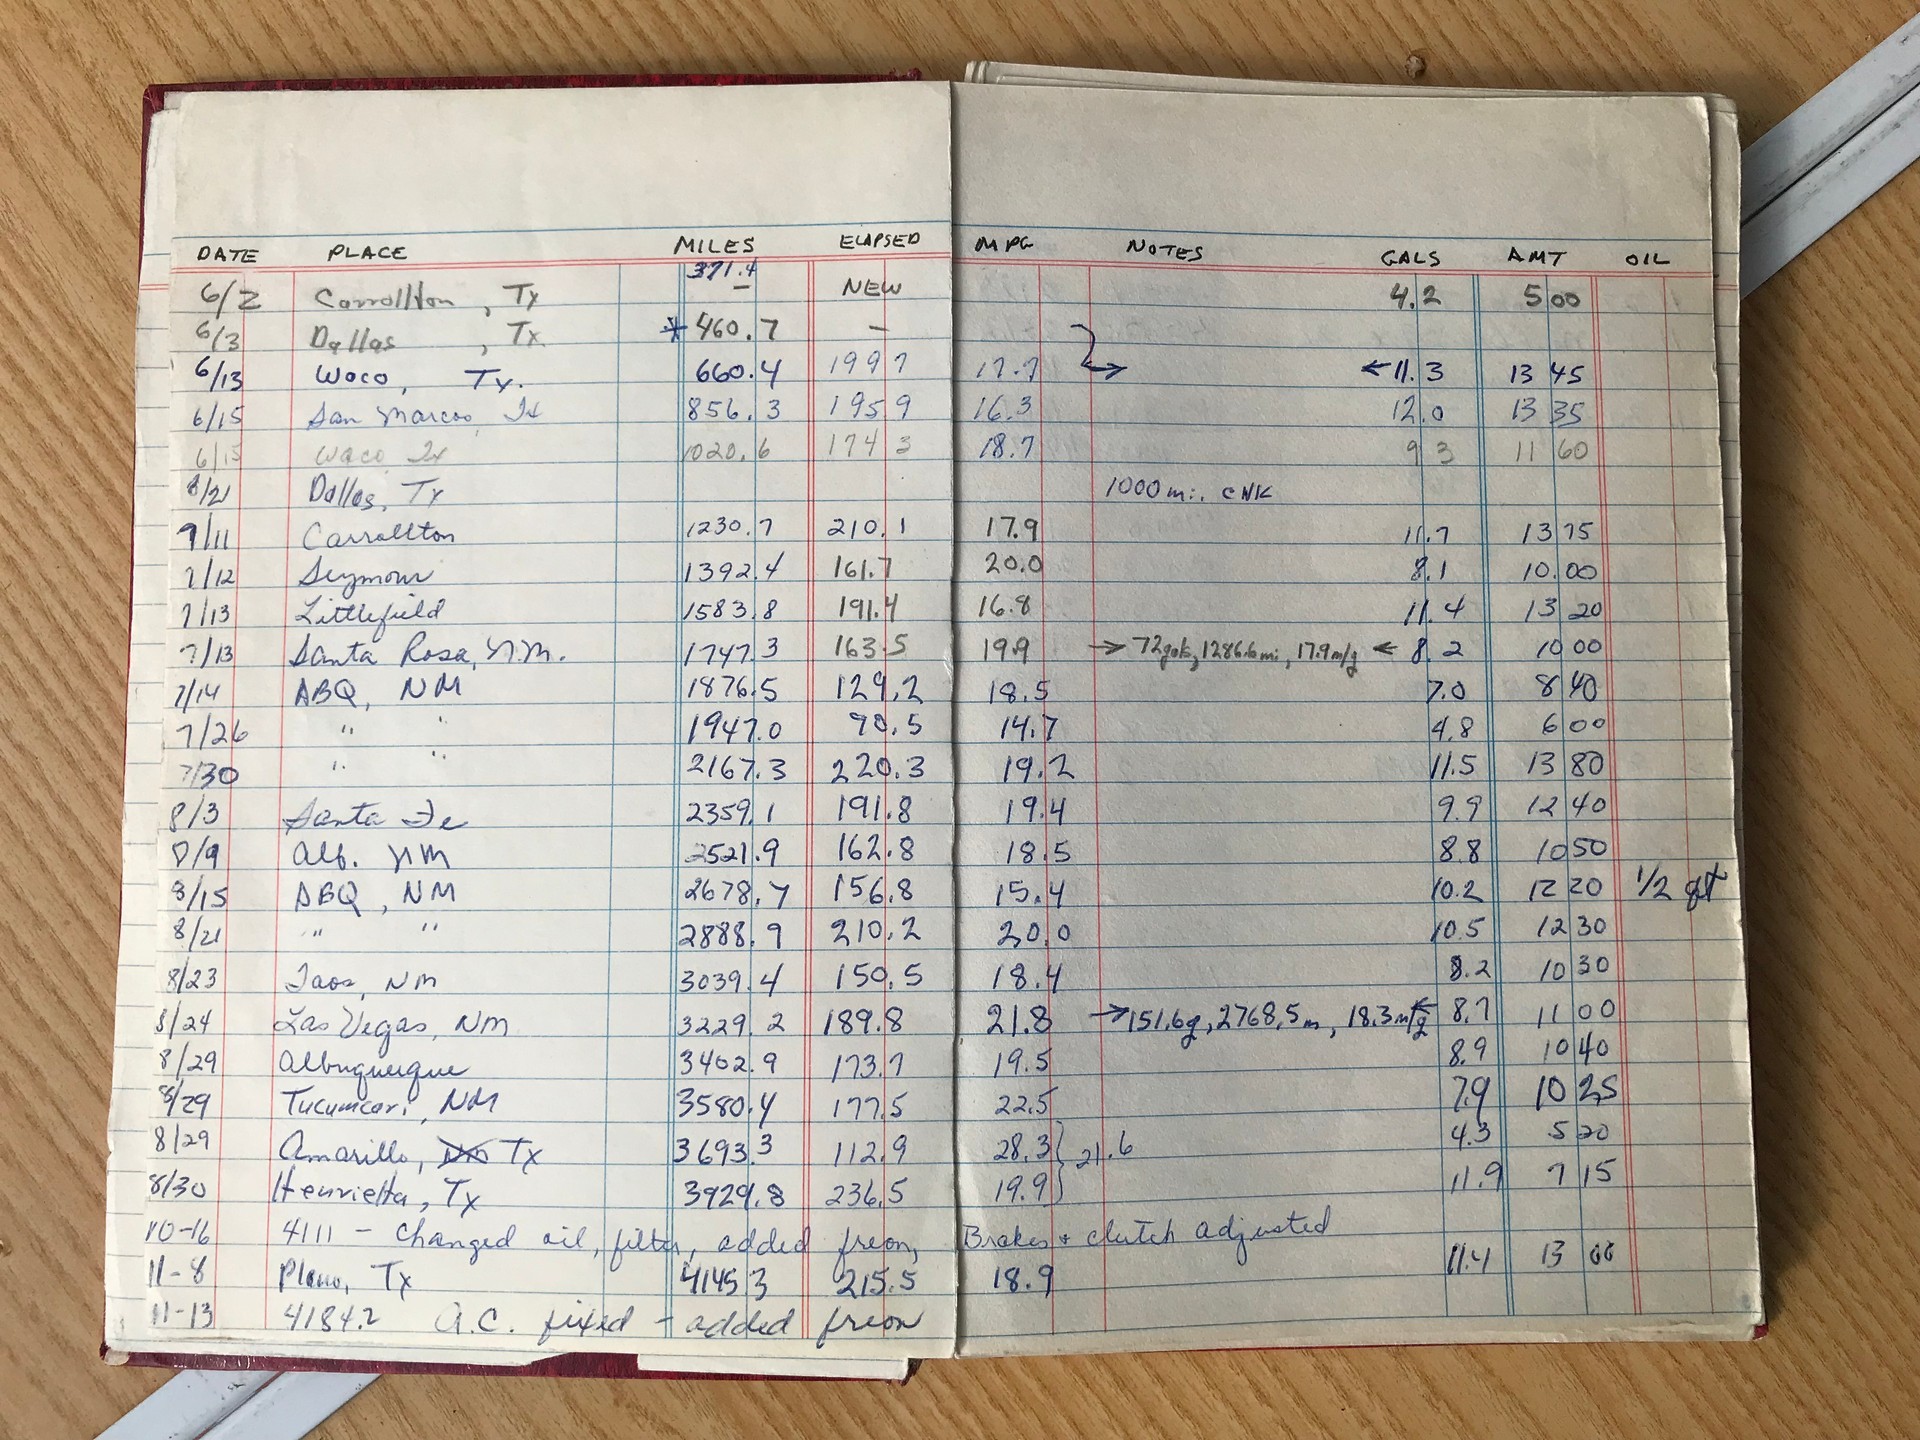 DATE PLACE MILES ELAPSED MPG NOTES GALS AMT OIL
371.4
6/2 Carrollton, Tx — NEW 4.2 5 00
6/3 Dallas, Tx * 460.7 —
6/13 Waco, Tx. 660.4 199 7 17.7 → ← 11.3 13 45
6/15 San Marcos, Tx 856.3 195 9 16.3 12.0 13 35
6/15 Waco Tx 1020.6 174 3 18.7 9 3 11 60
6/21 Dallas, Tx 1000 mi. CHK
7/11 Carrollton 1230.7 210.1 17.9 11.7 13 75
7/12 Seymour 1392.4 161.7 20.0 8.1 10.00
7/13 Littlefield 1583.8 191.4 16.8 11.4 13 20
7/13 Santa Rosa, N.M. 1747.3 163.5 19.9 → 72gals, 1286.6mi, 17.9m/g ← 8.2 10 00
7/14 ABQ, NM 1876.5 129.2 18.5 7.0 8 40
7/26 " " 1947.0 70.5 14.7 4.8 6 00
7/30 " " 2167.3 220.3 19.2 11.5 13 80
8/3 Santa Fe 2359.1 191.8 19.4 9.9 12 40
8/9 Alb. NM 2521.9 162.8 18.5 8.8 10 50
8/15 ABQ, NM 2678.7 156.8 15.4 10.2 12 20 1/2 qt
8/21 " " 2888.9 210.2 20.0 10.5 12 30
8/23 Taos, NM 3039.4 150.5 18.4 8.2 10 30
8/24 Las Vegas, NM 3229.2 189.8 21.8 → 151.6g, 2768.5m, 18.3m/g ← 8.7 11 00
8/29 Albuquerque 3402.9 173.7 19.5 8.9 10 40
8/29 Tucumcari, NM 3580.4 177.5 22.5 7.9 10 25
8/29 Amarillo, Tx 3693.3 112.9 28.3 } 21.6 4.3 5 20
8/30 Henrietta, Tx 3929.8 236.5 19.9 } 11.9 7 15
10-16 4111 - Changed oil, filter, added freon, Brakes + clutch adjusted
11-8 Plano, Tx 4145 3 215.5 18.9 11.4 13 00
11-13 4184.2 A.C. fixed - added freon